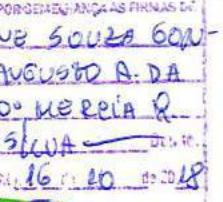 POR SEMELHANÇA AS FIRMAS DE
NE SOUZA GON-
AUGUSTO A. DA
SILVA
16 10 de 2018